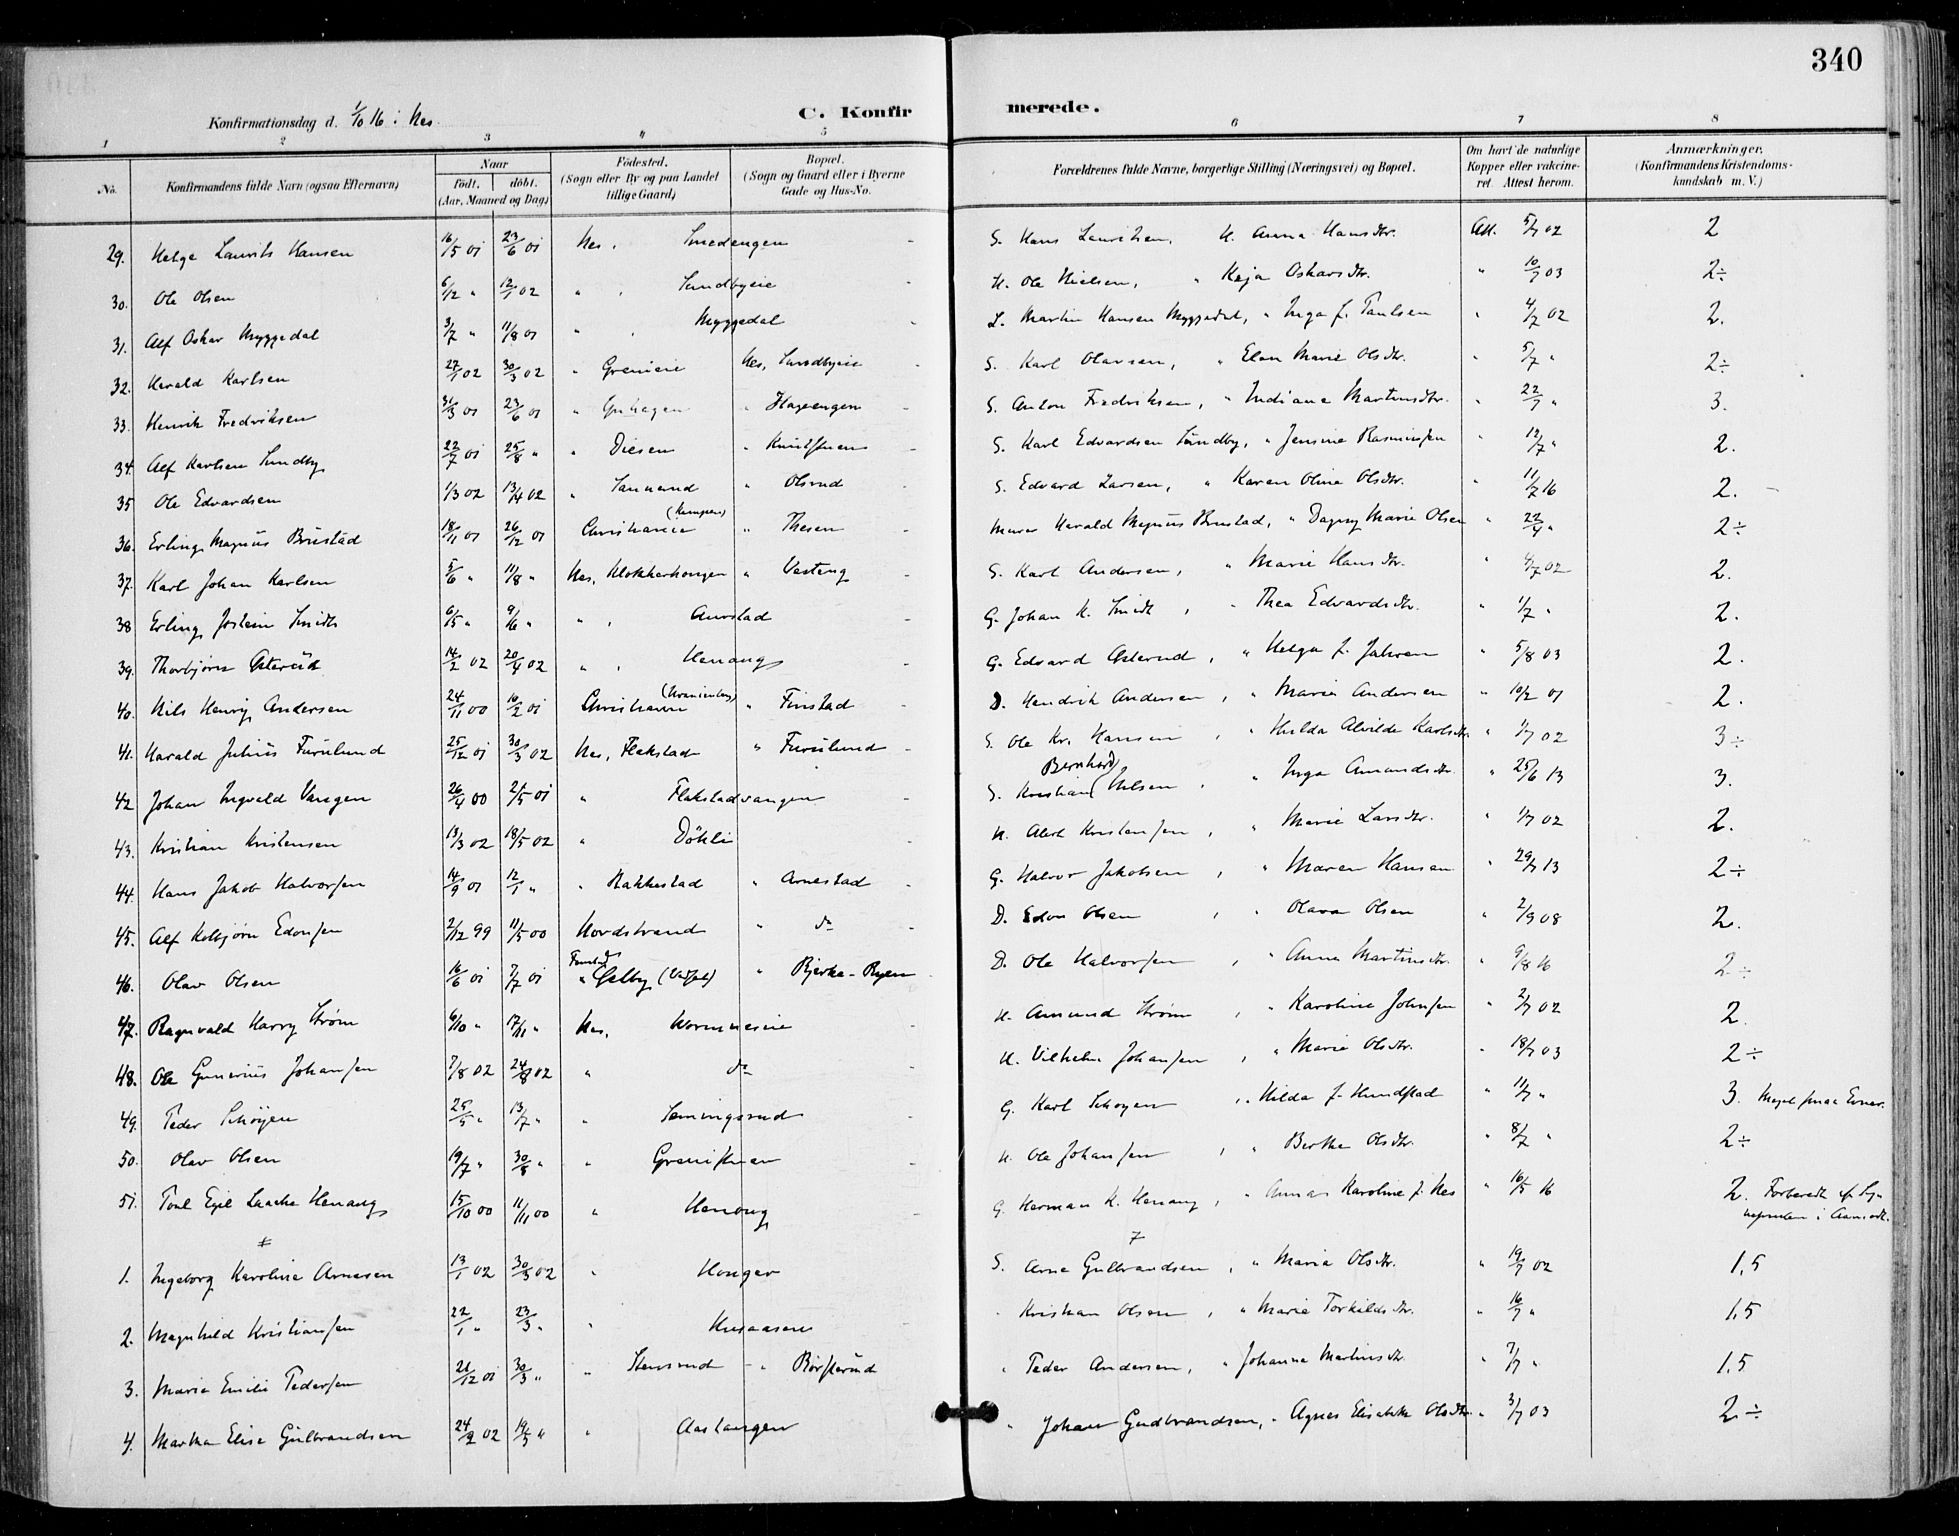 340
Konfirmationsdag d. 1/10 16 i Nes.
C. Konfirmerede.
1 2 3 4 5 6 7 8
No. Konfirmandens fulde Navn (ogsaa Efternavn) Naar født. døbt. (Aar, Maaned og Dag) Fødested. (Sogn eller By og paa Landet tillige Gaard) Bopæl. (Sogn og Gaard eller i Byerne Gade og Hus-No. Forældrenes fulde Navne, borgerlige Stilling (Næringsvei) og Bopæl. Om havt de naturlige Kopper eller vakcineret. Attest herom. Anmærkninger. (Konfirmandens Kristendomskundskab m. V.)
29. Helge Laurits Hansen 16/5 01 23/6 01 Nes, Smedengen S. Hans Lauritsen, H. Anna Hansdtr. Att. 5/7 02 2
30. Ole Olsen 6/12 " 12/1 02 " , Sundbyeie H. Ole Nielsen, " Kaja Oskarsdtr. " 10/7 03 2÷
31. Alf Oskar Myggedal 3/7 " 11/8 01 " , Myggedal L. Martin Hansen Myggedal, " Inga f. Paulsen " 4/7 02 2.
32. Harald Karlsen 27/1 02 30/3 02 " Grenieie Nes, Sundbyeie S. Karl Olavsen, " Elen Marie Olsdtr. " 5/7 " 2÷
33. Henrik Fredriksen 31/3 01 23/6 01 " Hageengen S. Anton Fredriksen, " Indiana Martinsdtr. " 22/7 " 3.
34. Alf Karlsen Sundby 22/7 01 25/8 " " Diesen " S. Karl Edvardsen Sundby, " Jensine Rasmussen " 12/7 " 2.
35 Ole Edvardsen 1/3 02 13/4 02 " " Olsrud S. Edvard Larsen, " Karen Oline Olsdtr. " 11/7 16 2.
36. Erling Magnus Brustad 18/11 01 26/12 01 Christiania (Kampen) " Thesen Murer Harald Magnus Brustad, " Dagny Marie Olsen " 22/4 " 2÷
37. Karl Johan Karlsen 5/6 " 11/8 " Nes, Klokkerhongen " Vesteng S. Karl Andersen, " Marie Hansdtr. " 4/7 02 2.
38 Erling Jostein Smidt 6/5 " 9/6 " " , Aurstad G. Johan K. Smidt, " Thea Edvardsdtr. " 1/7 " 2.
39. Thorbjørn Østerud 14/2 02 20/4 02 " , Henaug G. Edvard Østerud, " Helga f. Jahren " 5/8 03 2.
40. Nils Henry Andersen 24/11 00 10/2 01 Christiania (Uranienborg) " Finstad D. Hendrik Andersen, " Maria Andersen " 10/2 01 2.
41. Harald Julius Furulund 25/12 01 30/3 02 Nes, Flakstad " Furulund S. Ole Kr. Hansen, " Hulda Alvilde Karlsdtr. " 1/7 02 3÷
42 Johan Ingvald Vangen 26/4 00 2/5 01 " Flakstadvangen S. Kristian Bernhard Nilsen, " Inga Amundsdtr. " 25/6 13 3.
43. Kristian Kristensen 13/3 02 18/5 02 " Døhli H. Albert Kristensen, " Marie Larsdtr. " 1/7 02 2.
44. Hans Jakob Halvorsen 14/9 01 12/1 " " Rakkestad " Arnestad G. Halvor Jakobsen, " Maren Hansen " 29/7 13 2÷
45. Alf Kolbjørn Edonsen 2/12 99 11/5 00 Nordstrand " do D. Edon Olsen, " Olava Olsen " 2/9 08 2.
46. Olav Olsen 16/6 01 7/7 01 " (Udfalt) " Bjerke-Ryen D. Ole Halvorsen, " Anna Martinsdtr. " 9/8 16 2÷
47. Ragnvald Harry Strøm 6/10 " 17/11 " Nes, Wormneseie H. Amund Strøm, " Karoline Johnsen " 2/7 02 2.
48. Ole Gunerius Johansen 7/8 02 24/8 02 " do H. Vilhelm Johansen, " Marie Olsdtr. " 18/7 03 2÷
49. Peder Schøyen 25/5 " 13/7 " " Semingsrud G. Karl Schøyen, " Hilda f. Hundstad " 11/7 " 3. Meget smaa Evner.
50. Olav Olsen 19/7 " 30/8 " " H. Ole Johansen, " Berthe Olsdtr. " 8/7 " 2÷
51. Poul Egil Laache Henaug 15/10 00 11/11 00 " Henaug G. Herman K. Henaug, " Anna Karoline f. Nes " 16/5 16 2. Forberedt af Sognepresten i Aamodt.
1. Ingeborg Karoline Arnesen 13/1 02 30/3 02 " Honger S. Arne Gulbrandsen, " Maria Olsdtr. " 19/7 02 1,5
2. Magnhild Kristiansen 22/1 " 23/3 " " Husaasen Kristian Olsen, " Marie Torkildsdtr. " 16/7 " 1,5
3. Marie Emilie Pedersen 21/12 01 30/3 " " Stensrud " Børsterud " Peder Andersen, " Johanna Martinsdtr. " 7/7 " 1,5
4. Martha Elise Gulbrandsen 24/2 02 19/5 " " Aastangen " Johan Gudbrandsen, " Agnes Elisabeth Olsdtr. " 3/7 03 2÷